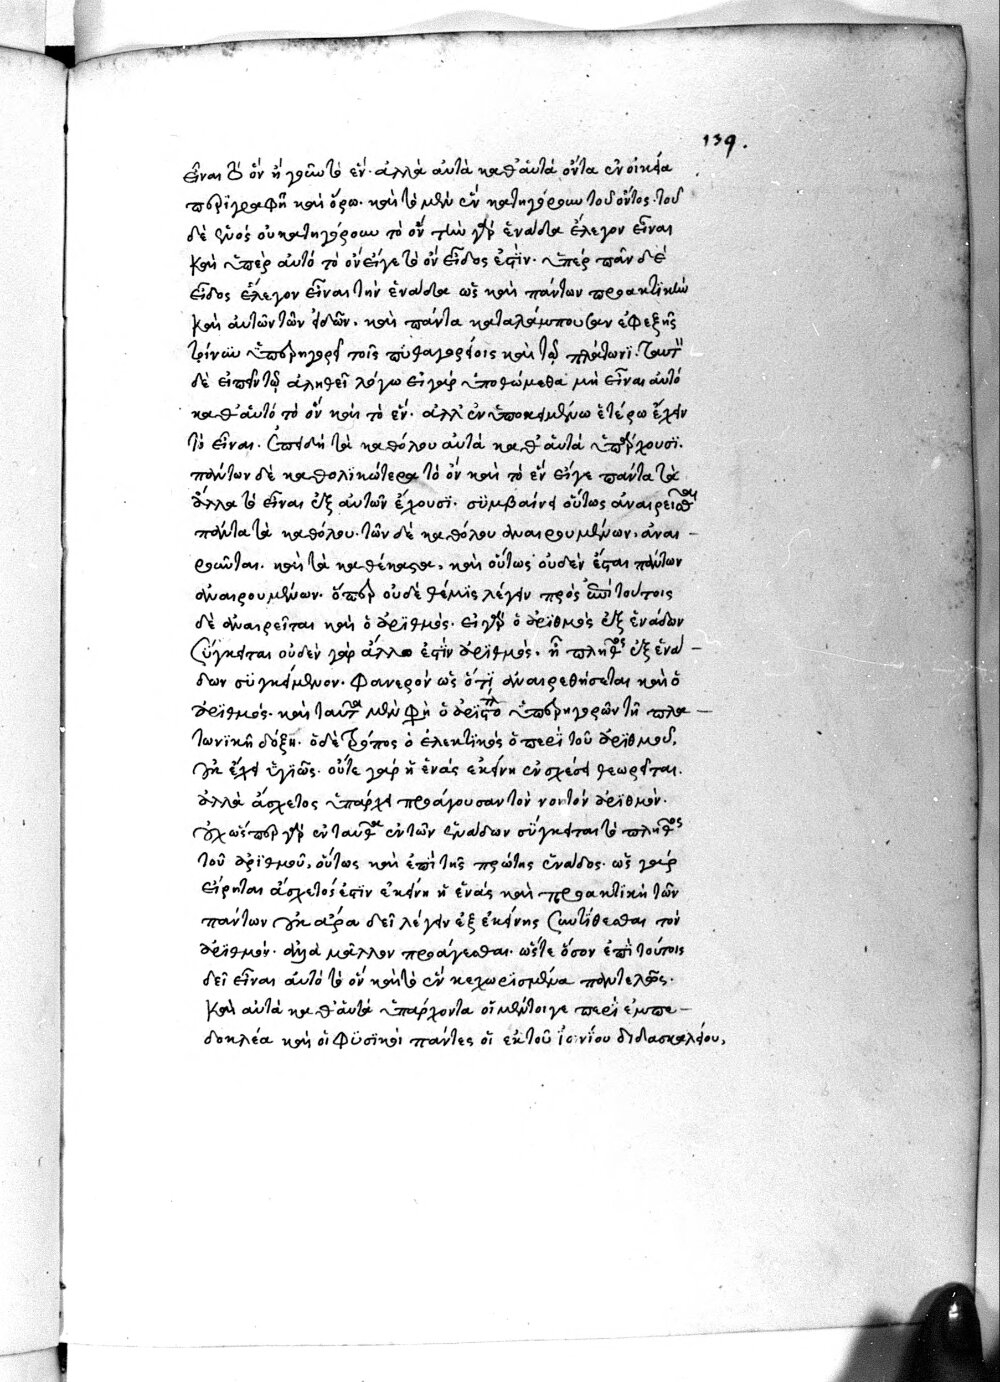 139.
εἶναι τὸ ὂν ἢ γοῦν τὸ ἕν· ἀλλὰ αὐτὰ καθ' αὑτὰ ὄντα ἐν οἰκεία
περιγραφῇ καὶ ὅρω· καὶ τὸ μὲν ἓν κατηγόρουν τοῦ ὄντος· τοῦ
δὲ ἑνὸς οὐ κατηγόρουν τὸ ὄν τὴν γὰρ ἑνάδα ἔλεγον εἶναι
καὶ ὑπὲρ αὐτὸ τὸ ὂν εἴγε τὸ ὂν εἶδος ἐστὶν· ὑπὲρ πᾶν δὲ
εἶδος ἔλεγον εἶναι τὴν ἑνάδα ὡς καὶ πάντων πρακτικὴν
καὶ αὐτῶν τῶν εἰδῶν· καὶ πάντα καταλάμπουσαν ἐφεξῆς
συνηγορεῖ τοῖς πυθαγορείοις καὶ τῷ πλάτωνι· ταῦτα
δὲ ἐπὶ τῷ ἀληθεῖ λόγω εἰ γὰρ ὑποθώμεθα μὴ εἶναι αὐτὸ
καθ' αὑτὸ τὸ ὂν καὶ τὸ ἕν· ἀλλ' ἐν ὑποκειμένω ἑτέρω ἔχειν
τὸ εἶναι· ἐπειδὴ τὰ καθόλου αὐτὰ καθ' αὑτὰ ὑπάρχουσι·
πάντων δὲ καθολικώτερα τὸ ὂν καὶ τὸ ἓν εἴγε πάντα τὰ
ἄλλα τὸ εἶναι ἐξ αὐτῶν ἔχουσι· συμβαίνει οὕτως ἀναιρεῖσθαι
πάντα τὰ καθόλου· τῶν δὲ καθόλου ἀναιρουμένων, ἀναι-
ροῦνται· καὶ τὰ καθέκαστα, καὶ οὕτως οὐδὲν ἔσται πάντων
ἀναιρουμένων· ὅπερ οὐδὲ θέμις λέγειν πρὸς ἐπὶ τούτοις
δὲ ἀναιρεῖται καὶ ὁ ἀριθμός· εἰ γὰρ ὁ ἀριθμὸς ἐξ ἑνάδων
σύγκειται οὐδὲν γὰρ ἄλλο ἐστὶν ἀριθμὸς· ἢ πλῆθος ἐξ ἑνά-
δων συγκείμενον· φανερὸν ὡς ὅτι ἀναιρεθήσεται καὶ ὁ
ἀριθμός· καὶ ταῦτα μὲν φησὶ ὁ ἀριστο ὑπερηγορῶν τῆ πλα-
τωνικῆ δόξη· ὁ δὲ τρόπος ὁ ἐλεκτικὸς ὁ περὶ τοῦ ἀριθμοῦ,
οὐκ ἔχει ὑγιῶς· οὔτε γὰρ ἡ ἑνὰς ἐκείνη ἐν σχέσει θεωρεῖται·
ἀλλὰ ἄσχετος ὑπάρχει προάγουσα τὸν νοητὸν ἀριθμόν·
οὐχ ὥσπερ γὰρ ἐνταῦθα ἐκ τῶν ἑνάδων σύγκειται τὸ πλῆθος
τοῦ ἀριθμοῦ, οὕτως καὶ ἐπὶ τῆς πρώτης ἑνάδος· ὡς γὰρ
εἴρηται ἄσχετός ἐστιν ἐκείνη ἡ ἑνὰς καὶ πρακτικὴ τῶν
πάντων οὐκ ἄρα δεῖ λέγειν ἐξ ἐκείνης συντίθεσθαι τὸν
ἀριθμόν· ἀλλὰ μᾶλλον προάγεσθαι· ὥστε ὅσον ἐπὶ τούτοις
δεῖ εἶναι αὐτὸ τὸ ὂν καὶ τὸ ἓν κεχωρισμένα παντελῶς·
καὶ αὐτὰ καθ' αὑτὰ ὑπάρχοντα οἱ μέντοιγε περὶ ἐμπε-
δοκλέα καὶ οἱ φυσικοὶ πάντες οἱ ἐκ τοῦ ἰωνίου διδασκαλείου,